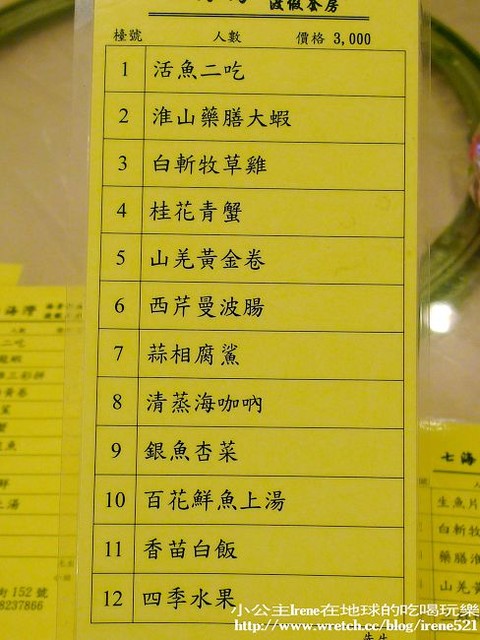 渡假套房
檯號 人數 價格 3,000
1 活魚二吃
2 淮山藥膳大蝦
3 白斬牧草雞
4 桂花青蟹
5 山羌黃金卷
6 西芹曼波腸
7 蒜相腐鯊
8 清蒸海咖吶
9 銀魚杏菜
10 百花鮮魚上湯
11 香苗白飯
12 四季水果
先生
海灣
人數
二吃
街 152 號
8237866
七海
生魚片
白斬牧
藥膳淮
山羌黃
小公主Irene在地球的吃喝玩樂
http://www.wretch.cc/blog/irene521